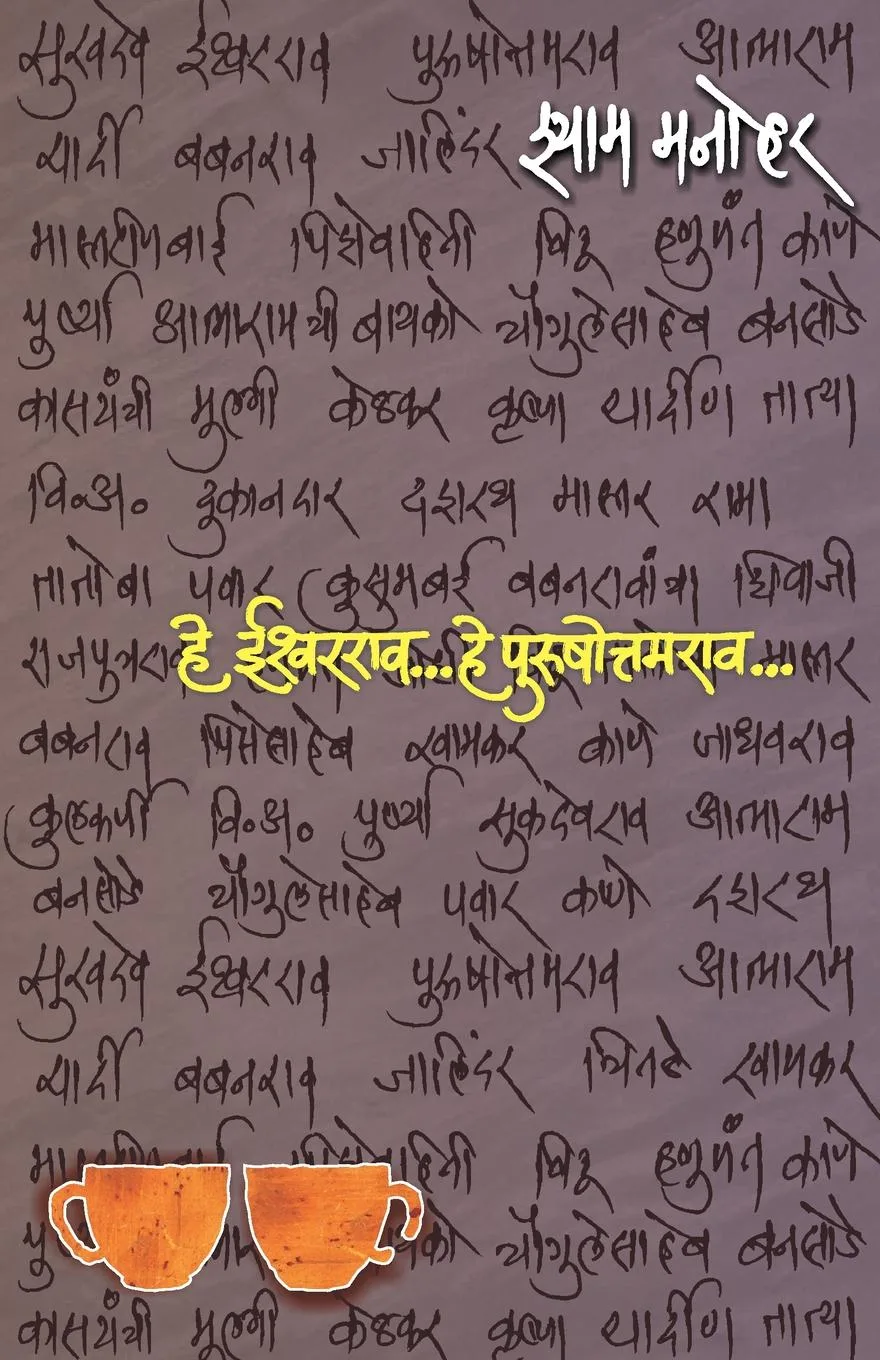 सुखदेव ईश्वरराव पुरूषोत्तमराव आत्माराम
श्याम मनोहर
यार्दी बबनराव जालिंदर
मास्तरीणबाई पिसेवहिनी बिटू हणुमंत काणे
पुर्ष्या आत्मारामची बायको चौगुलेसाहेब बनसोडे
कासयंत्री मुलगी केळकर कृष्णा यार्दीण तात्या
वि.अ. दुकानदार दशरथ मास्तर रामा
तातोबा पवार कुसुमबाई बबनरावांचा शिवाजी
हे ईश्वरराव...हे पुरुषोत्तमराव...
राजपुत्रराव मास्तर
बबनराव पिसेसाहेब खामकर काणे जाधवराव
कुलकर्णी वि.अ. सुकदेवराव आत्माराम
बनसोडे चौगुलेसाहेब पवार काणे दशरथ
सुखदेव ईश्वरराव पुरूषोत्तमराव आत्माराम
यार्दी बबनराव जालिंदर चितळे खामकर
हणुमंत काणे
बायको चौगुलेसाहेब बनसोडे
मुलगी केळकर कृष्णा यार्दीण तात्या